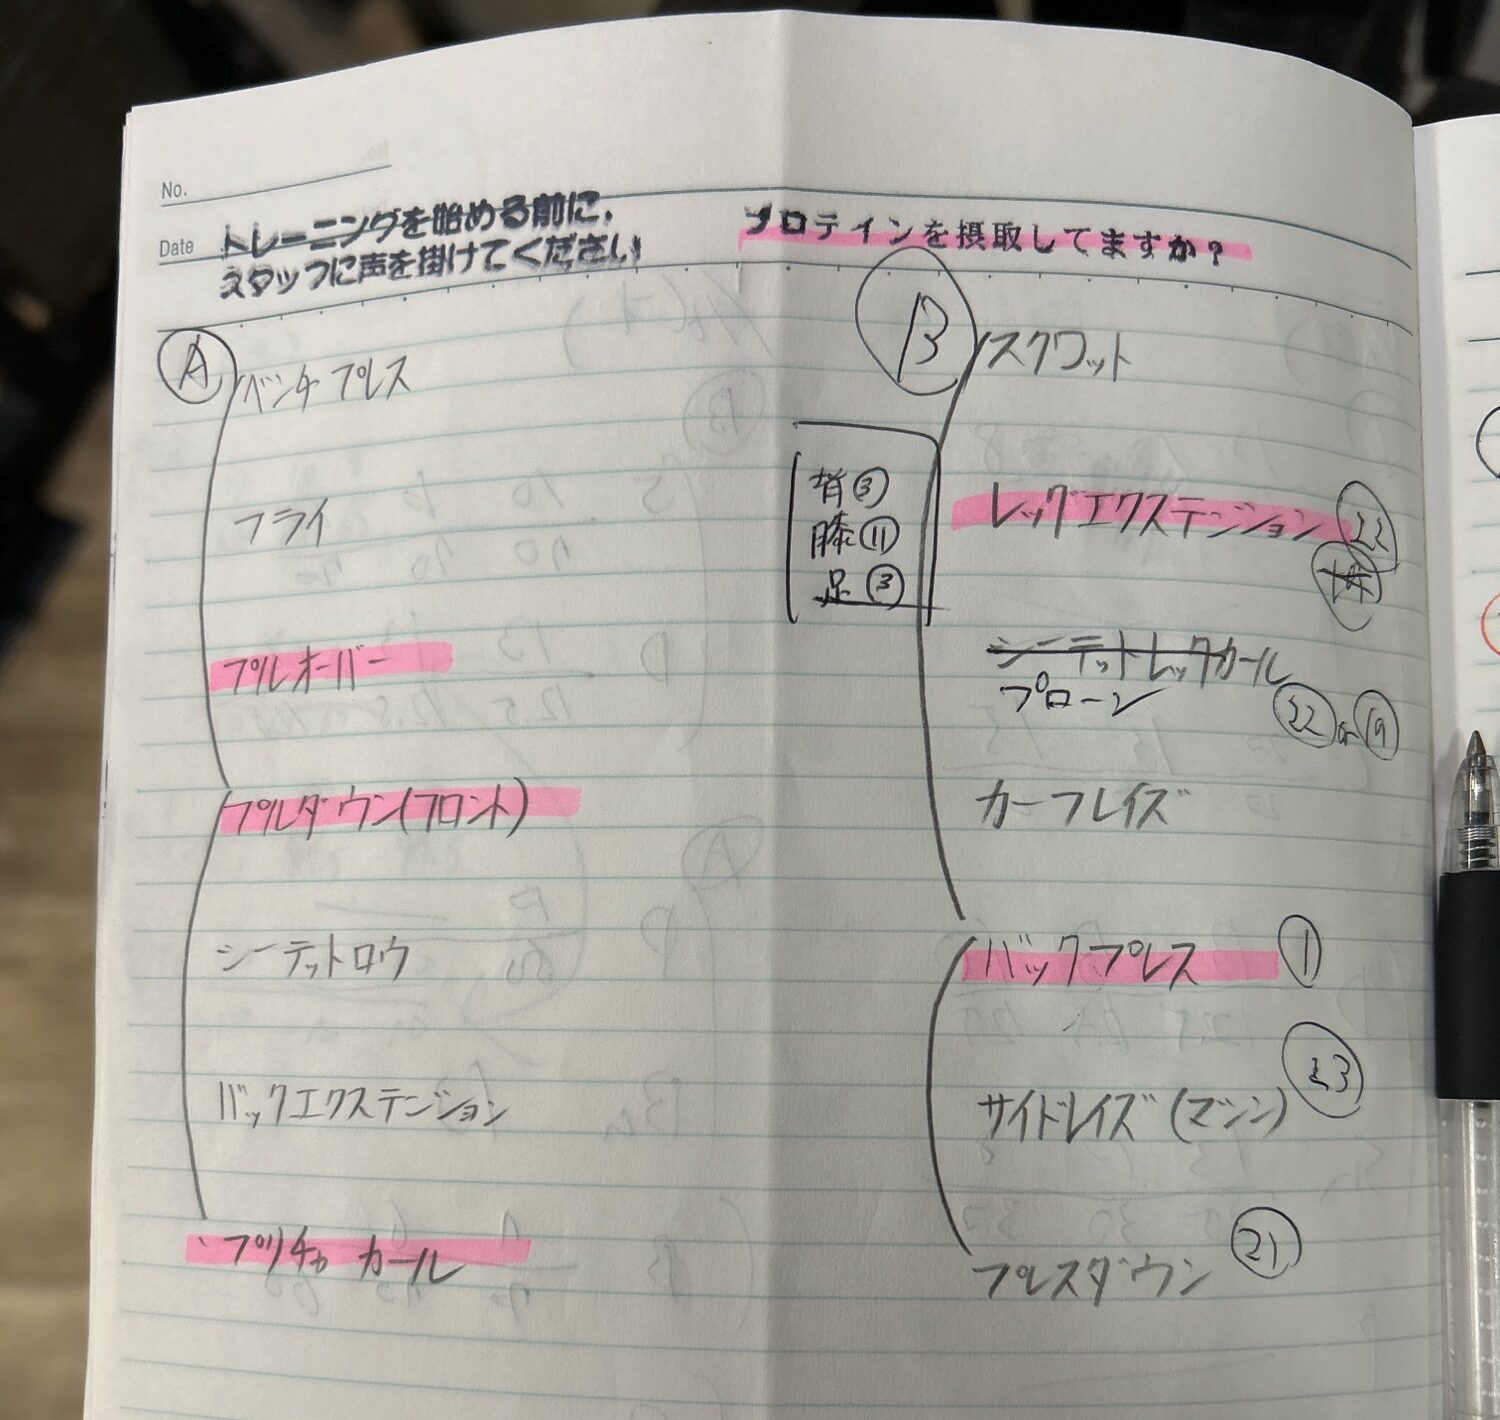 No.
Date
トレーニングを始める前に、
スタッフに声を掛けてください
プロテインを摂取してますか?
A
ベンチプレス
フライ
プルオーバー
プルダウン(フロント)
シーテットロウ
バックエクステンション
プリチャカール
B
スクワット
背③
膝⑪
足③
レッグエクステンション 22
14
シーテットレッグカール
プローン
22 or 19
カーフレイズ
バックプレス ①
サイドレイズ(マシン) 23
プレスダウン 21